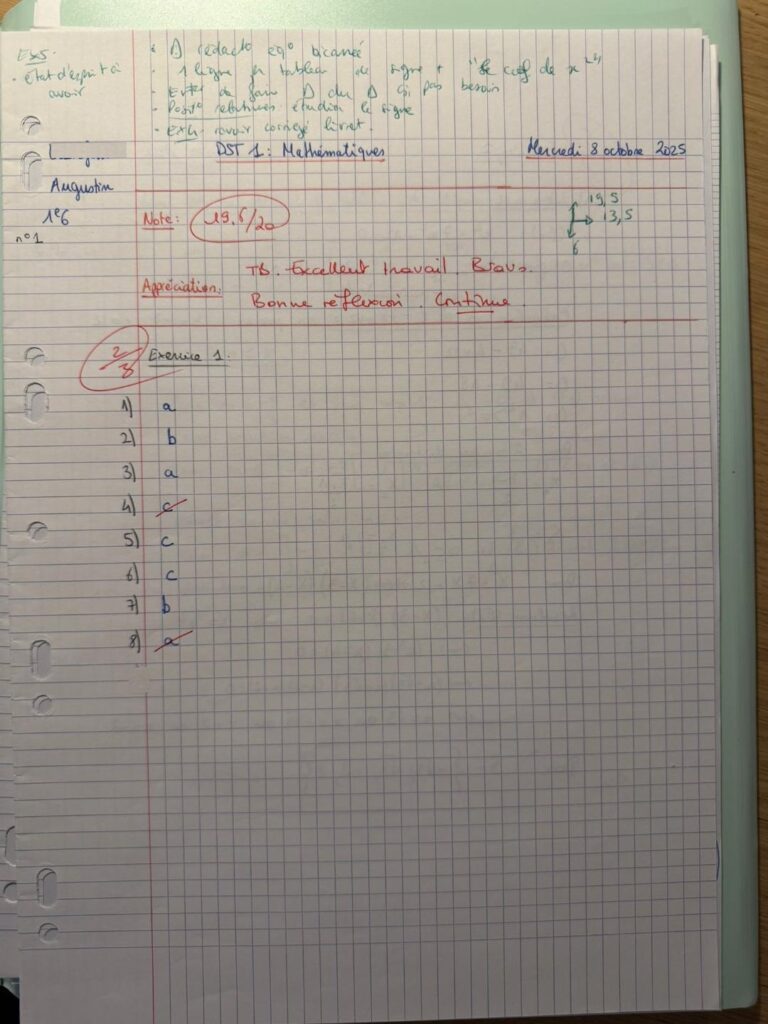 Ex 5.
• état d'esprit à
avoir
• Δ rédact° eq° bicarrée
• 1 ligne pr tableau de signe + "le coef de x²"
• Eviter de faire Δ du Δ si pas besoin
• Posit° relatives : étudier le signe
• Ex 4 : avoir corrigé livret.
DST 1 : Mathématiques
Mercredi 8 octobre 2025
Augustin
1e6
n°1
Note : 19,5/20
19,5
13,5
6
Appréciation :
TB. Excellent travail. Bravo.
Bonne réflexion. Continue.
2/3
Exercice 1.
1) a
2) b
3) a
4) c
5) c
6) c
7) b
8) a